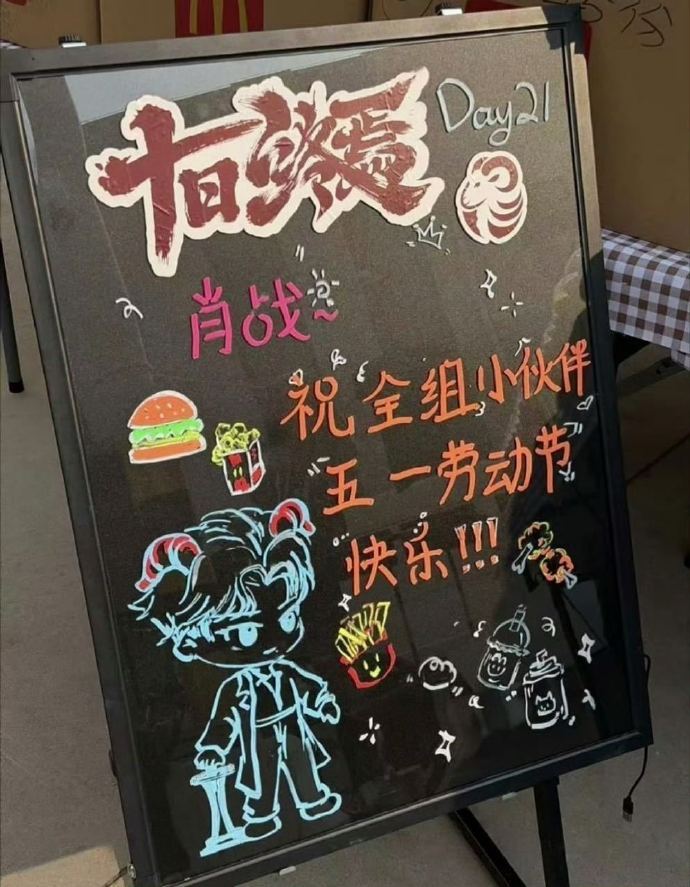 十日终焉
Day 21
肖战~
祝全组小伙伴
五一劳动节
快乐!!!